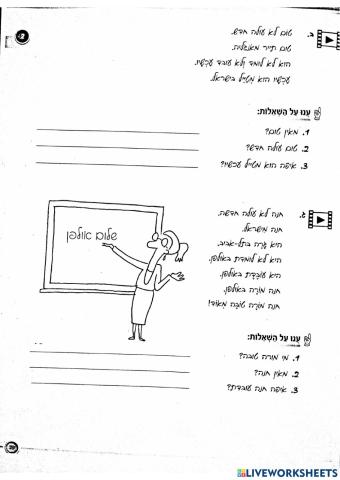 ב.
טום לא עולה חדש.
טום תייר מאנגליה.
הוא לא לומד ולא עובד עכשיו.
עכשיו הוא מטייל בישראל.
ענו על השאלות:
1. מאין טום?
2. טום עולה חדש?
3. איפה הוא מטייל עכשיו?
ג.
חנה לא עולה חדשה.
חנה מישראל.
היא גרה בתל-אביב.
היא לא לומדת באולפן.
היא עובדת באולפן.
חנה מורה באולפן.
חנה מורה טובה מאוד!
שלום אולפן
ענו על השאלות:
1. מי מורה טובה?
2. מאין חנה?
3. איפה חנה עובדת?
LIVEWORKSHEETS